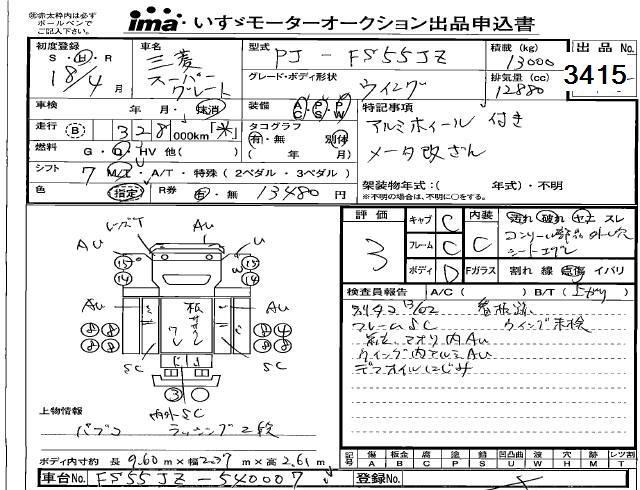 ㊟赤太枠内は必ず
ボールペンで
ご記入下さい。
ima いすゞモーターオークション出品申込書
初度登録 S・H・R 18/4 月
車名 三菱 スーパーグレート
型式 PJ-FS55JZ
積載(kg) 13000
出品No. 3415
グレード・ボディ形状 ウイング
排気量(cc) 12880
車検 年 月・抹消
装備 AC・PS・PW
特記事項
アルミホイール 付き
メータ改ざん
走行 B 328,000km「米」
タコグラフ 有・無 別体
( 年 月)
燃料 G・O・HV 他( )
シフト 7 MT・A/T・特殊(2ペダル・3ペダル)
架装物年式:( 年式)・不明
※不明の場合は、不明に○をする。
色 指定 R券 有・無 13480円
評価 3
キャブ C
フレーム C
ボディ D
内装 C
汚れ 破れ ヤケ スレ
Fガラス 割れ 線 点傷 イバリ
検査員報告 A/C( ) B/T(上がり)
フレームSC ウイング未検
ウイング内アルミAU
デフオイルにじみ
AU AU U
15 14 15 14
AU AU
8 8 8 8 8 4 8 8
SC SC
3
内外SC
上物情報
パブコ ラッシング2段
ボディ内寸約 長 9.60m×幅2.37m×高2.61m
記号 傷 A 板金 B 腐 C 塗 P 錆 S 凹凸曲 U 波 W 穴 H 欠 M レツ割 T
車台No. FS55JZ-540007
登録No.